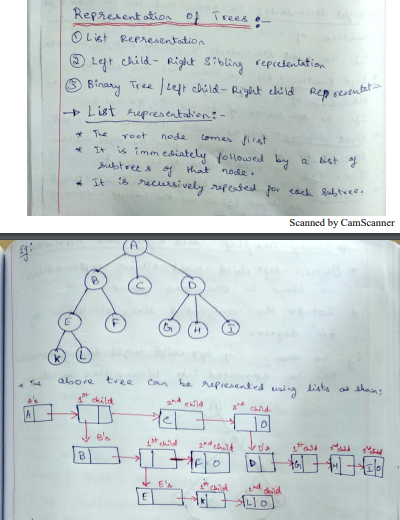 Representation of Trees :-
① List Representation
② Left child - Right Sibling representation
③ Binary Tree / Left child - Right child Representation
→ List representation :-
* The root node comes first
* It is immediately followed by a list of
subtrees of that node.
* It is recursively repeated for each subtree.
Scanned by CamScanner
Eg:
A
B C D
E F G H I
K L
* The above tree can be represented using lists as shown:
A's 1st child 2nd child 3rd child
A C 0
B's 1st child 2nd child D's 1st child 2nd child 3rd child
B F 0 D G H I 0
E's 1st child 2nd child
E K L 0